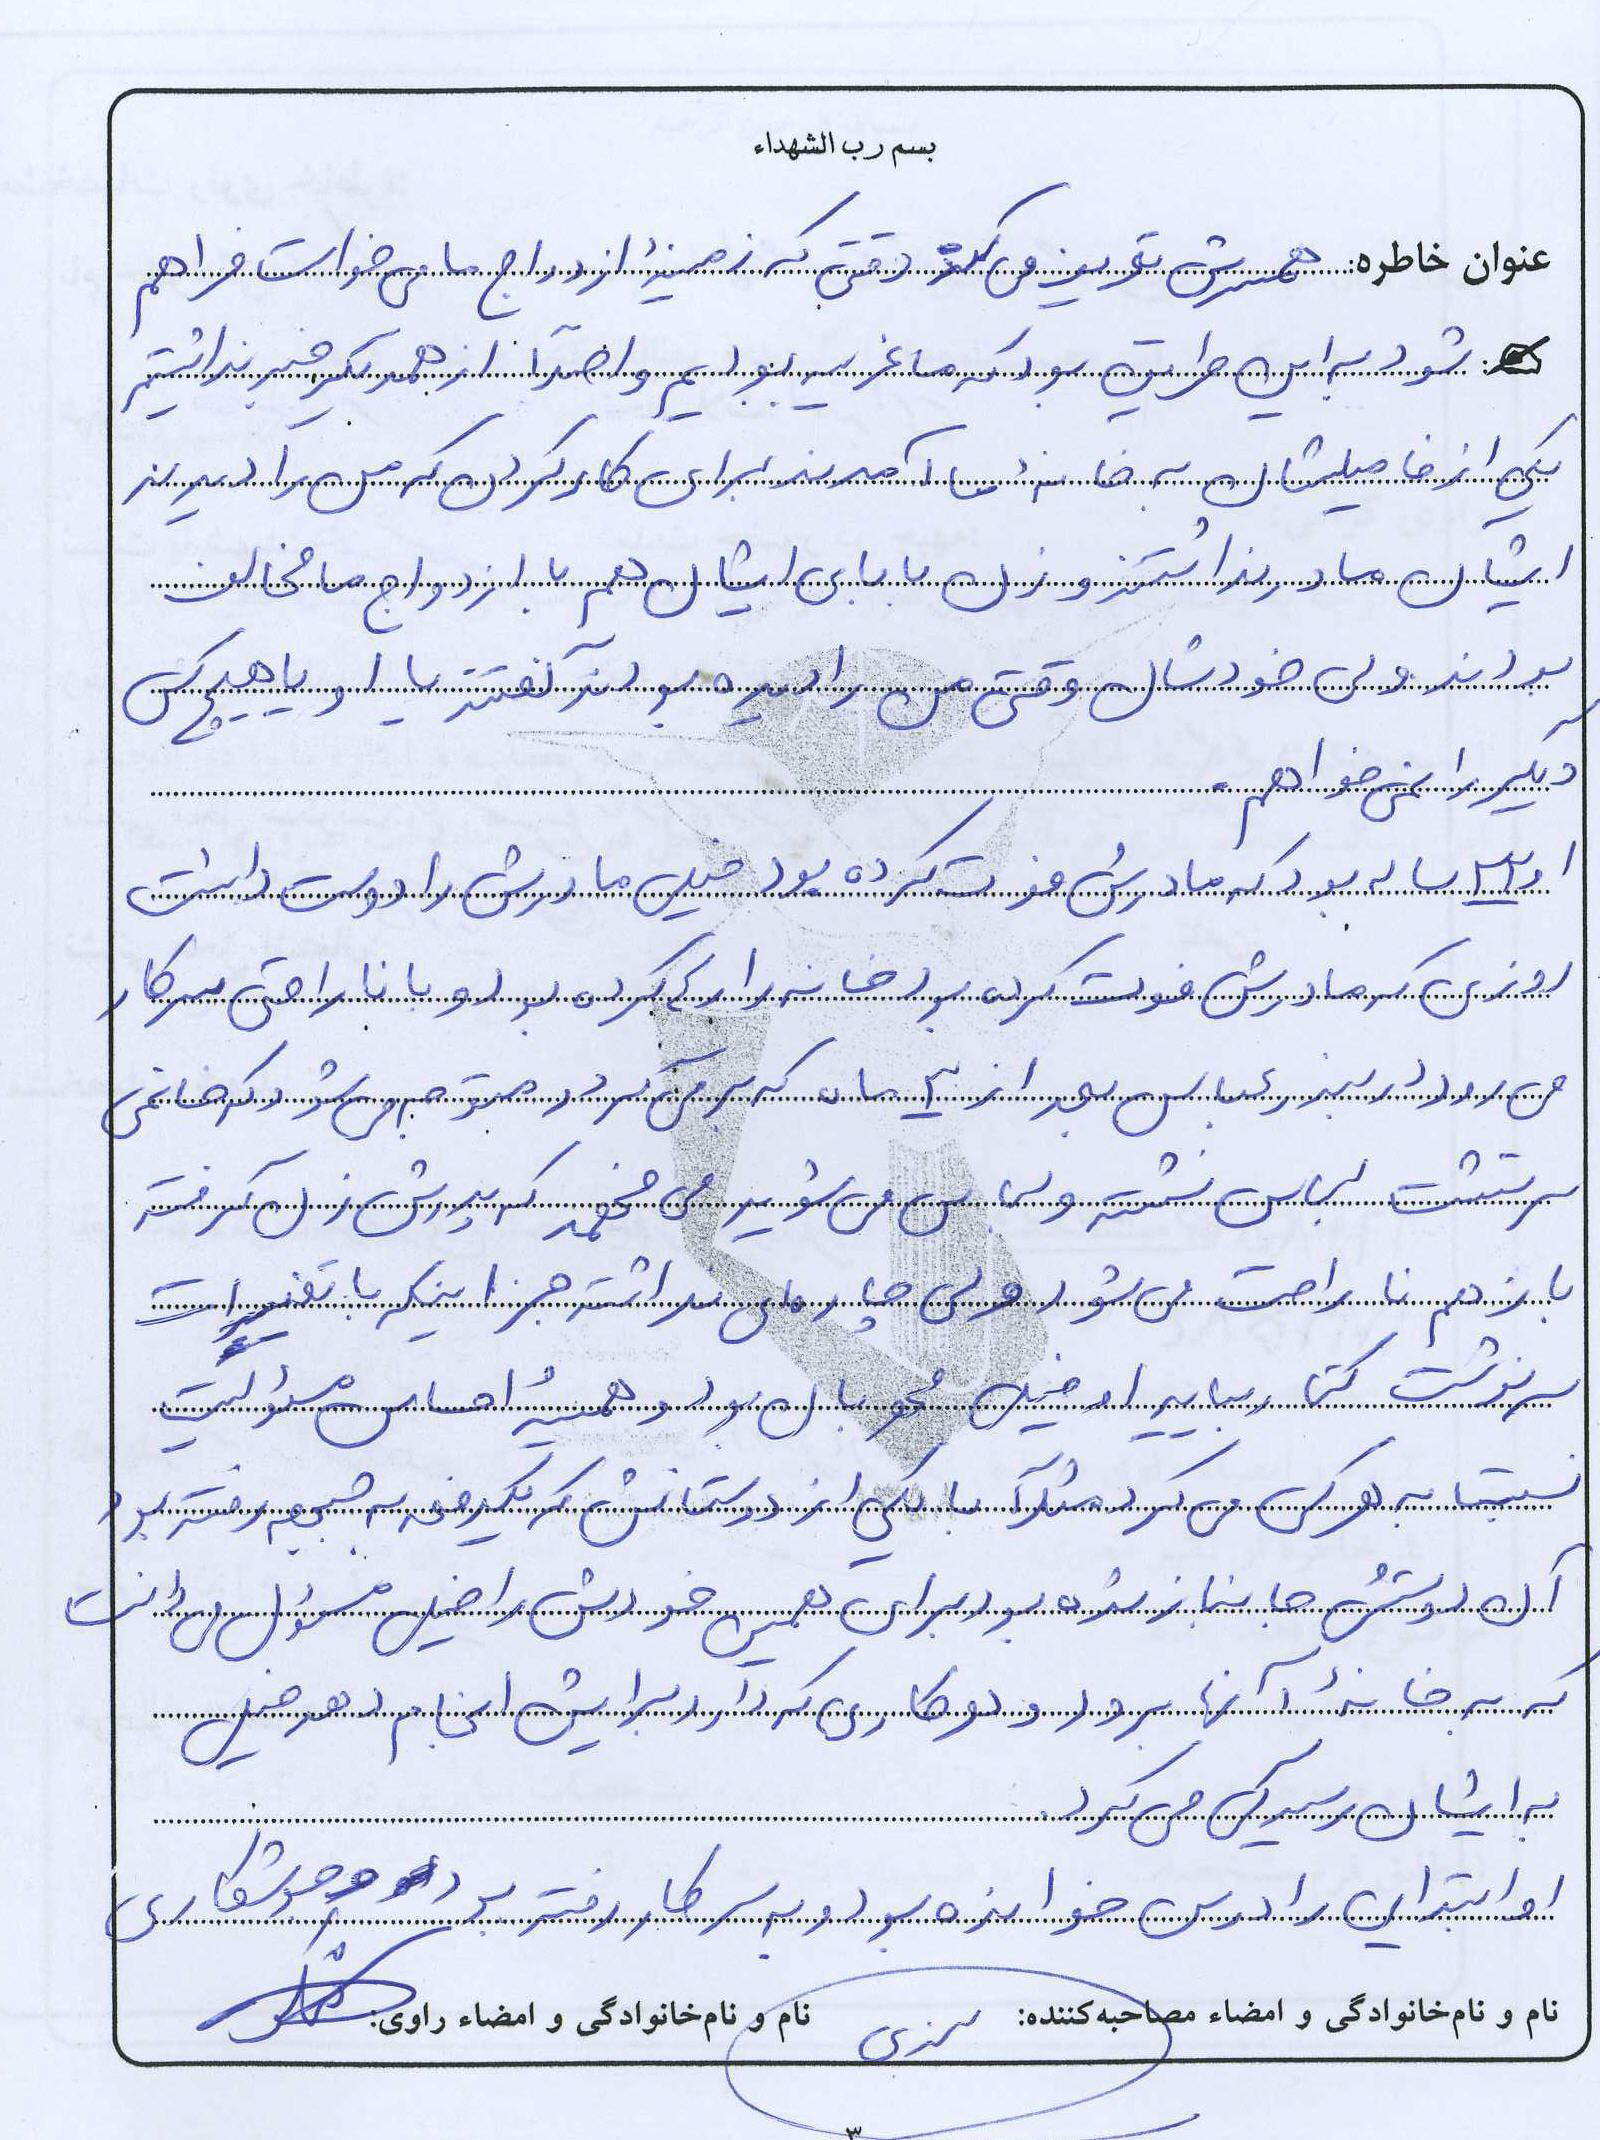 بسم رب الشهداء
عنوان خاطره: همسرش تعریف می کند وقتی که زمینۀ ازدواج ما می خواست فراهم
شود به این طریق بود که ما غریبه بودیم و اصلاً از همدیگر خبر نداشتیم
یکی از فامیلیشان به خانۀ ما آمدند برای کار کردن که من را دیدند
ایشان مادر نداشتند و زن بابای ایشان هم با ازدواج ما مخالف
بودند ولی خودشان وقتی من را دیده بودند گفتند یا او یا هیچ کس
دیگر را نمی خواهم.
او ساله بود که مادرش فوت کرده بود خیلی مادرش را دوست داشت
روزی که مادرش فوت کرده بود خانه را ترک کرده بود و با ناراحتی سر کار
می رود در بندر عباس بعد از ماه که بر می گردد متوجه می شود که خانمی
سر تشت لباس نشسته و لباس می شوید می فهمد که پدرش زن گرفته
باز هم ناراحت می شود ولی چاره ای نداشته جز اینکه با تغییرات
سرنوشت کنار بیاید او خیلی مهربان بود و همیشه احساس مسؤلیت
نسبتا به هر کس می کرد مثلاً با یکی از دوستانش که یکدفعه به جبهه رفته بود
آن دوستش جانباز شده بود برای همین خودش را خیلی مسؤل می دانست
که به خانۀ آنها برود و هر کاری که دارد برایش انجام دهد خیلی
به ایشان رسیدگی می کرد.
او ابتدایی را درس خوانده بود و به سر کار رفته بود جوشکاری
نام و نام‌خانوادگی و امضاء مصاحبه‌کننده: نام و نام‌خانوادگی و امضاء راوی:
۳